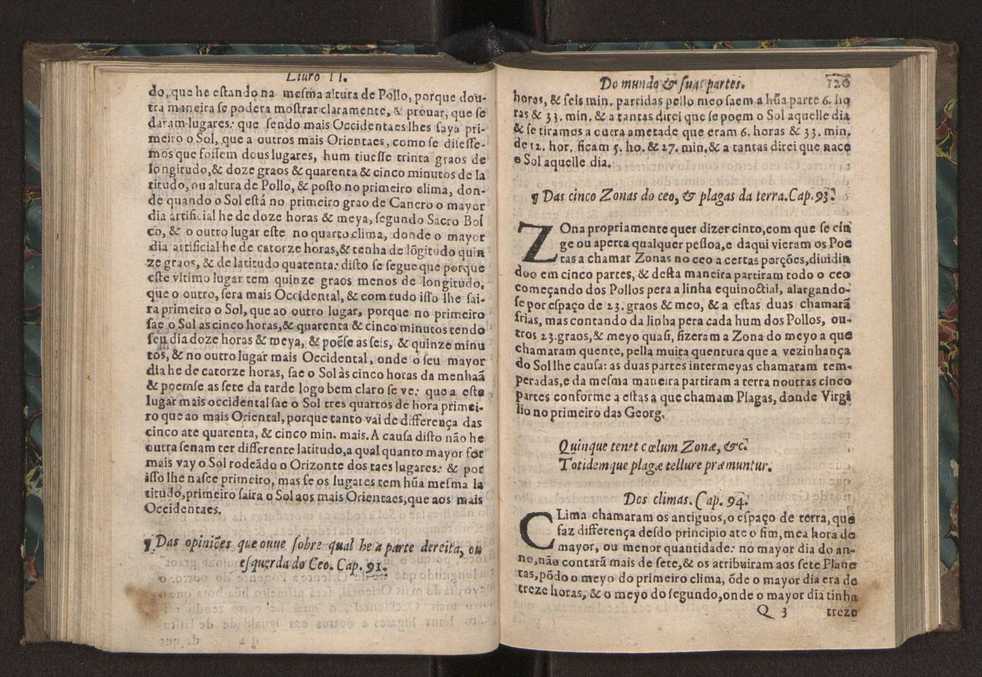 Liuro II.
do, que he estando na mesma altura de Pollo, porque dou-
tra maneira se podera mostrar claramente, & prouar, que se
daram lugares: que sendo mais Occidentaes lhes saya pri-
meiro o Sol, que a outros mais Orientaes, como se disesse-
mos que fossem dous lugares, hum tiuesse trinta graos de
longitudo, & doze graos & quarenta & cinco minutos de la
titudo, ou altura de Pollo, & posto no primeiro clima, don-
de quando o Sol està no primeiro grao de Cancro o mayor
dia artificial he de doze horas & meya, segundo Sacro Bol
co, & o outro lugar este no quarto clima, donde o mayor
dia artificial he de catorze horas, & tenha de lõgitudo quin
ze graos, & de latitudo quarenta: disto se segue que porque
este vltimo lugar tem quinze graos menos de longitudo,
que o outro, sera mais Occidental, & com tudo isso lhe sai-
ra primeiro o Sol, que ao outro lugar, porque no primeiro
sae o Sol as cinco horas, & quarenta & cinco minutos tendo
seu dia doze horas & meya, & poẽse as seis, & quinze minu
tos, & no outro lugar mais Occidental, onde o seu mayor
dia he de catorze horas, sae o Sol às cinco horas da menhaã
& poemse as sete da tarde logo bem claro se ve: que a este
lugar mais occidental sae o Sol tres quartos de hora primei-
ro que ao mais Oriental, porque tanto vai de differença das
cinco ate quarenta, & cinco min. mais. A causa disto não he
outra senam ter differente latitudo, a qual quanto mayor for
mais vay o Sol rodeãdo o Orizonte dos taes lugares: & por
isso lhe nasce primeiro, mas se os lugares tem hũa mesma la
titudo, primeiro saira o Sol aos mais Orientaes, que aos mais
Occidentaes.
¶ Das opiniões que ouue sobre qual he a parte dereita, ou
esquerda do Ceo. Cap. 91.
Do mundo & suas partes. 120
horas, & seis min. partidas pello meo saem a hũa parte 6. ho
ras & 33. min, & a tantas direi que se poem o Sol aquelle dia
& se tiramos a outra ametade que eram 6. horas & 33. min.
de 12. hor. ficam 5. ho. & 27. min, & a tantas direi que nace
o Sol aquelle dia.
¶ Das cinco Zonas do ceo, & plagas da terra. Cap. 93.
ZOna propriamente quer dizer cinto, com que se cin
ge ou aperta qualquer pessoa, e daqui vieram os Poe
tas a chamar Zonas no ceo a certas porções, diuidin
doo em cinco partes, & desta maneira partiram todo o ceo
começando dos Pollos pera a linha equinoctial, alargando-
se por espaço de 23. graos & meo, & a estas duas chamarã
frias, mas contando da linha pera cada hum dos Pollos, ou-
tros 23. graos, & meyo quasi, fizeram a Zona do meyo a que
chamaram quente, pella muita quentura que a vezinhança
do Sol lhe causa: as duas partes intermeyas chamaram tem-
peradas, e da mesma maneira partiram a terra noutras cinco
partes conforme a estas a que chamam Plagas, donde Virgi
lio no primeiro das Georg.
Quinque tenet cœlum Zonæ, &c.
Totidemque plagæ tellure præmuntur.
Dos climas. Cap. 94.
CLima chamaram os antiguos, o espaço de terra, que
faz differença desdo principio ate o fim, mea hora de
mayor, ou menor quantidade: no mayor dia do an-
no, não contarã mais de sete, & os atribuiram aos sete Plane
tas, põdo o meyo do primeiro clima, õde o mayor dia era de
treze horas, & o meyo do segundo, onde o mayor dia tinha
Q 3 treze